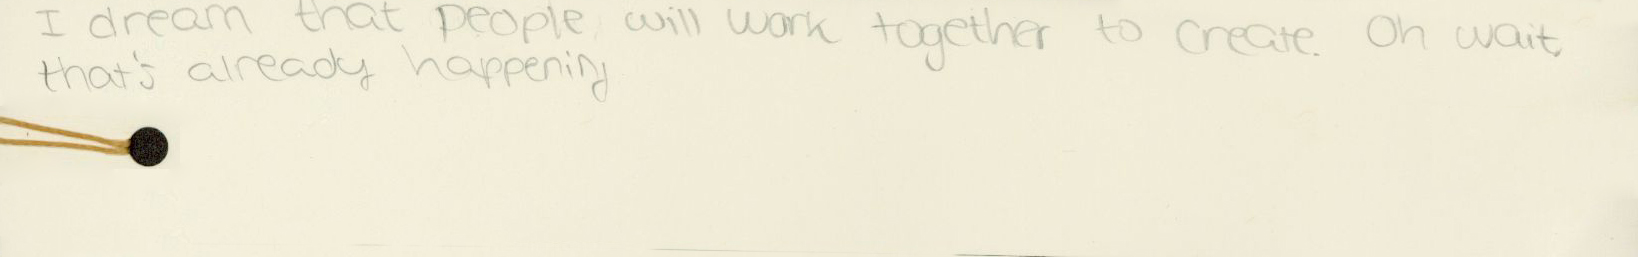 I dream that people will work together to create. Oh wait,
that's already happening